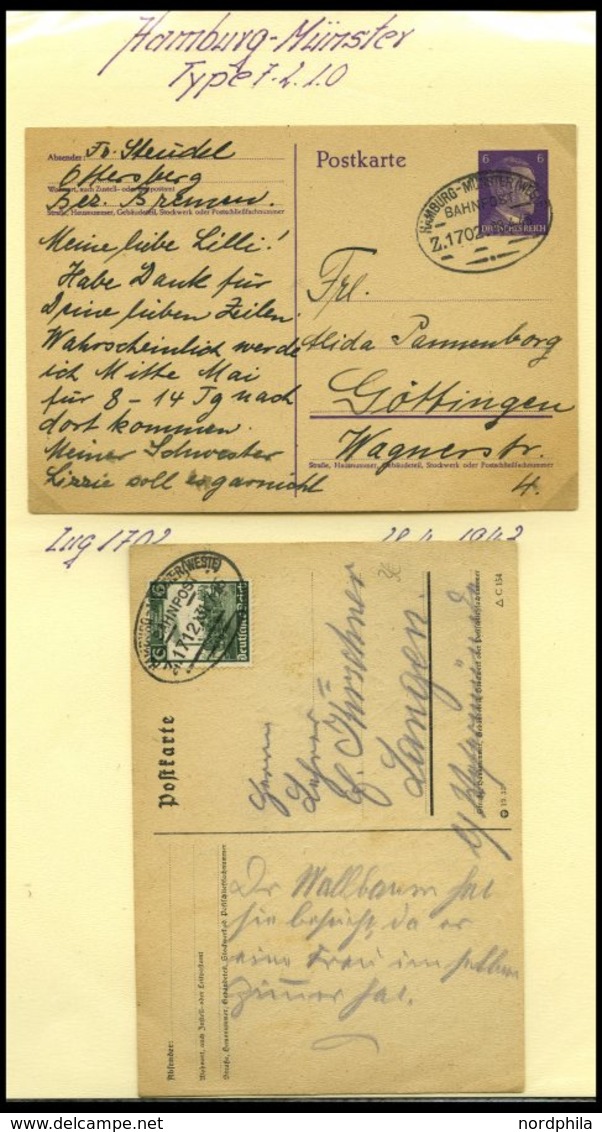 Hamburg-Münster
Type 7.2.1.0
Absender: Fr. Steudel
Ottersberg
Wohnort, auch Zustell- oder Leitpostamt
Bez. Bremen.
Straße, Hausnummer, Gebäudeteil, Stockwerk oder Postschließfachnummer
Meine liebe Lilli!
Habe Dank für
Deine lieben Zeilen.
Wahrscheinlich werde
ich Mitte Mai
für 8 - 14 Tg nach
dort kommen.
Meiner Schwester
Lizzie soll es garnicht
Postkarte
6 6
DEUTSCHES REICH
HAMBURG-MÜNSTER (WESTF)
BAHNPOST
Z.1702
Frl.
Alida Pannenborg
Göttingen
Wagnerstr.
Straße, Hausnummer, Gebäudeteil, Stockwerk oder Postschließfachnummer
4.
Zug 1702
1942
(WESTF)
BAHNPOST
Z.1712
6 6
Deutsches Reich
Postkarte
Herrn
Lehrer
Langen
Straße, Hausnummer, Gebäudeteil, Stockwerk od. Postschließfachnummer
△ C 154
Dr Wallbaum hat
sie besucht, da er
eine Frau im selben
Zimmer hat.
Absender:
Wohnort, auch Zustell- oder Leitpostamt
Straße, Hausnummer, Gebäudeteil, Stockwerk od. Postschließfachnummer
www.delcampe.net
nordphila